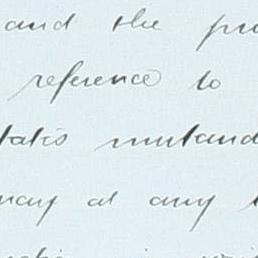 and the pro
reference to
tatis mutand
may at any